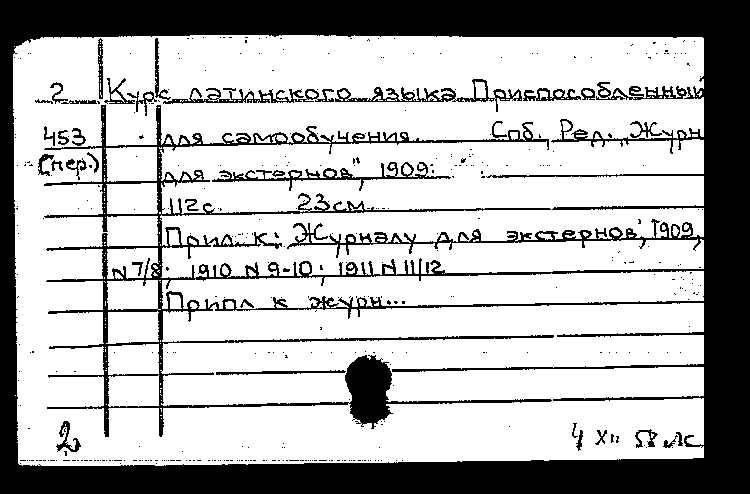 2 Курс латинского языка Приспособленный
453 для самообучения. Спб., Ред. „Журн
(пер.) для экстернов", 1909.
112 с. 23 см.
Прил. к: Журналу для экстернов, 1909,
N 7/8; 1910 N 9-10; 1911 N 11/12
Припл к журн...
2 4 XII 58 лс